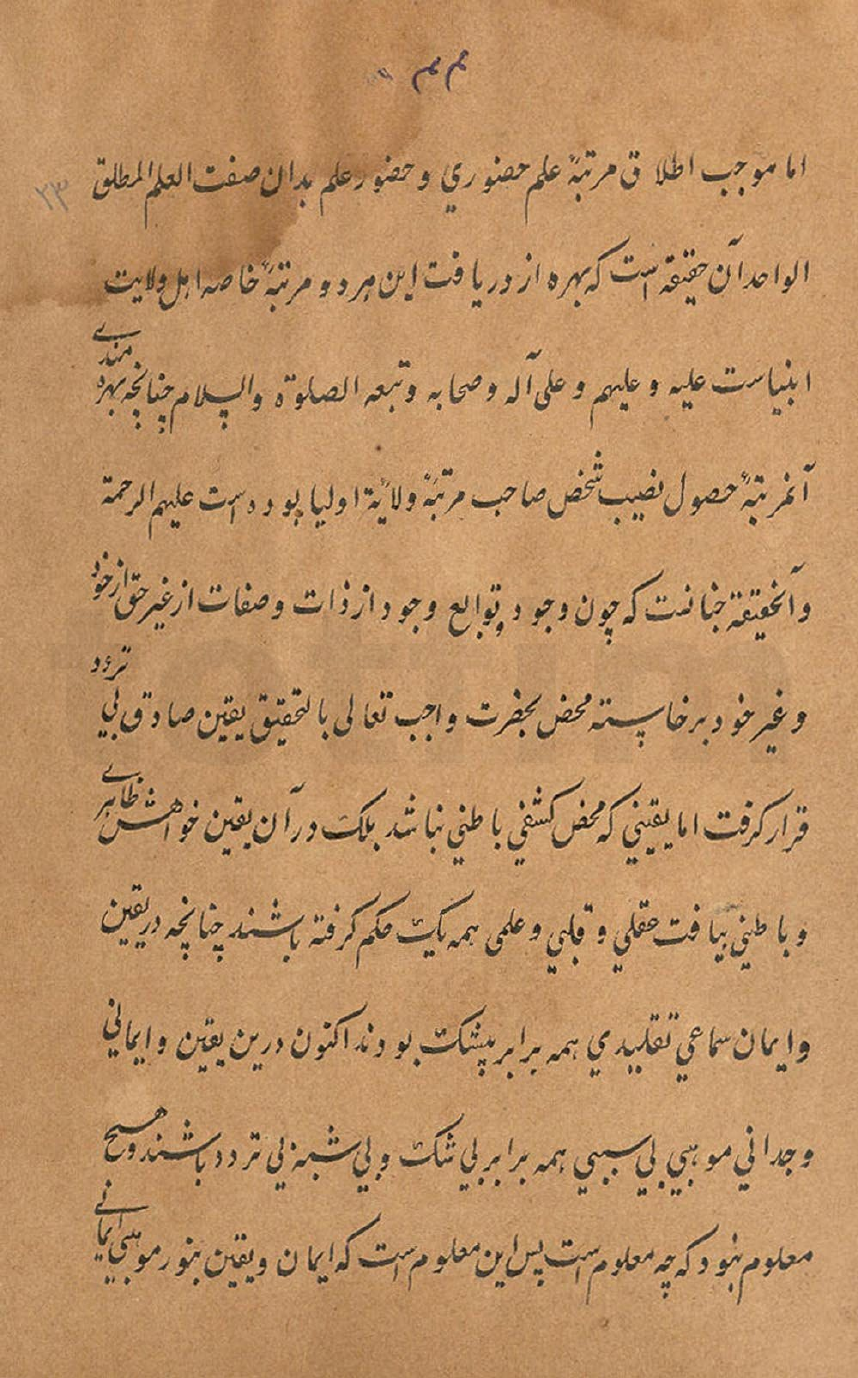 ۳۳
۲۳
اما موجب اطلاق مرتبهٔ علم حضوري و حضور علم بدان صفت العلم المطلق
الواحد آن حقیقة است که بهره از دریافت این هردو مرتبهٔ خاصه اهل ولایت
انبیاست علیه و علیهم و علی آله و صحابه و تبعه الصلوة والسلام چنانچه بهره مندے
آنمرتبهٔ حصول نصیب شخص صاحب مرتبهٔ ولایة اولیا بوده است علیهم الرحمة
و آنحقیقة چنانست که چون وجود و توابع وجود از ذات و صفات از غیر حق از خود
و غیر خود برخاسته محض بحضرت واجب تعالی بالتحقیق یقین صادق بي تردد
قرار کرفت اما یقیني که محض کشفي باطني نباشد بلک در آن یقین خواهش ظاهرے
و باطني یافت عقلي و قلبي و علمی همه یک حکم کرفته باشند چنانچه در یقین
و ایمان سماعي تقلیدي همه برابر بیشک بودند اکنون درین یقین و ایماني
وجداني موهبي بي سببي همه برابر بي شک و بي شبه بي تردد باشند و هیچ
معلوم نبود که چه معلوم است پس این معلوم است که ایمان و یقین بنور موهبي ایمانے